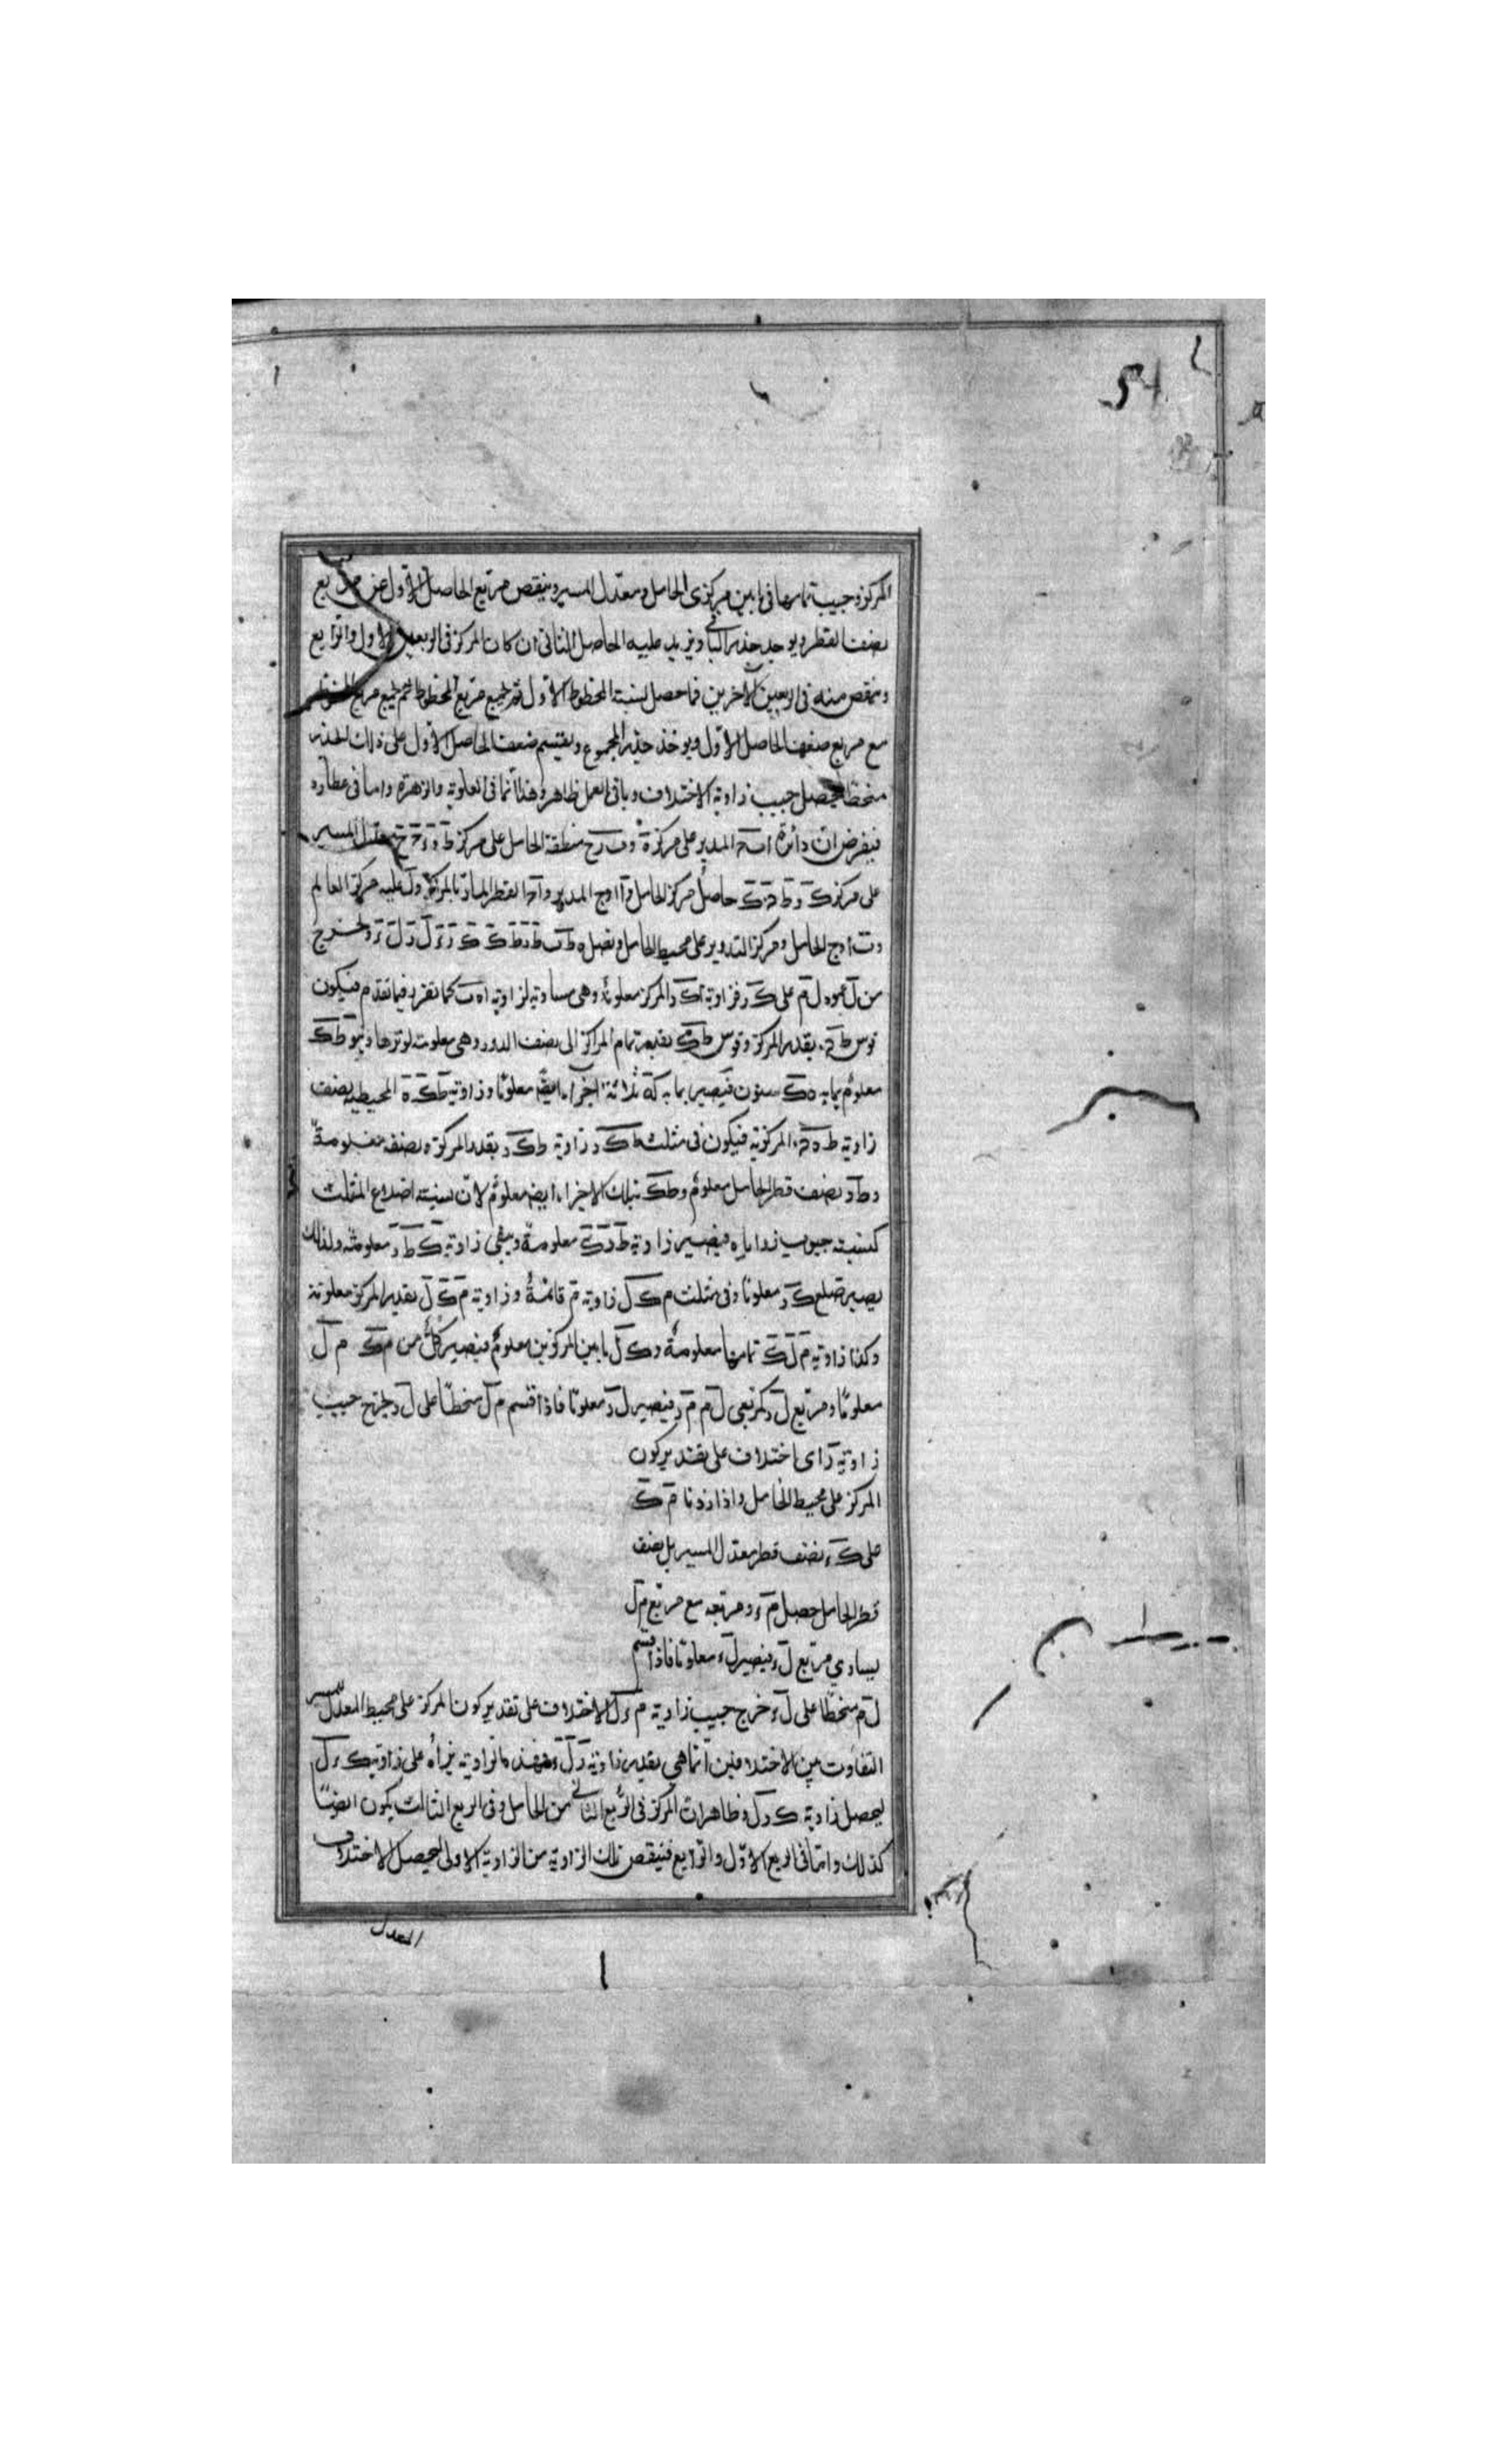 54
المركز وجيب تمامها فى ما بين مركزى الحامل ومعدل المسير وينقص مربع الحاصل الاول من مربع
نصف القطر ويوجد جذر الباقى ويزيد عليه الحاصل الثانى ان كان المركز فى الربعين الاول والرابع
وينقص منه فى الربعين الاخرين فما حصل لنسبته المحفوظ الاول ثم لجميع مربع المحفوظ
مع مربع ضعف الحاصل الاول ويوخذ جذر المجموع ويقسم ضعف الحاصل الاول على ذلك الجذر
منحطا ليحصل جيب زاوية الاختلاف وباقى العمل ظاهر وهذا انما فى العلوية والزهرة واما فى عطارد
فيفرض ان دائرة المدير على مركز ه منطقة الحامل على مركز ط معدل المسير
على مركز ك حاصل مركز الحامل و ا اوج المدير القطر المار بالمركز و ل عليه مركز العالم
اوج الحامل و مركز التدوير على محيط الحامل ونصل ونخرج
من ل عمود ل م على ك ر فزاوية المركز معلومة وهى مساوية لزاوية كما تقرر فيما تقدم فيكون
قوس بقدر المركز وقوس بقدر تمام المركز الى نصف الدور وهى معلومة لوترها وهو ط ك
معلوم بما به ه ك ستون فيصير بما به ثلاثة اجزاء ايضا معلوما وزاوية ط ك ه المحيطية نصف
زاوية المركزية فيكون فى مثلث ط ك ر زاوية ط ك ر بقدر المركز ونصفه معلومة
و ط ر نصف قطر الحامل معلوم و ط ك بتلك الاجزاء ايضا معلوم لان نسبته اضلاع المثلث
كنسبته جيوب زواياه فيصير زاوية ط ر ك معلومة ويبقى زاوية ك ط ر معلومة ولذلك
يصير ضلع ك ر معلوما وفى مثلث م ك ل زاوية م قائمة وزاوية م ك ل بقدر المركز معلومة
وكذا زاوية م ل ك تمامها معلومة و ك ل ما بين المركزين معلوم فيصير كل من م ك م ل
معلوما ومربع ل ر كمربعى ل م م ر فيصير ل ر معلوما فاذا قسم م ل منحطا على ل ر يخرج جيب
زاوية ر اى اختلاف على تقدير كون
المركز على محيط الحامل واذا زدنا م ك
على ك ء نصف قطر معدل المسير بل نصف
قطر الحامل حصل م ء ومربعه مع مربع م ل
يساوي مربع ل ء فيصير ل ء معلوما فاذا قسم
ل م منحطا على ل ء خرج جيب زاوية م ء ل الاختلاف على تقدير كون المركز على محيط المعدل المسير
التفاوت بين الاختلافين انما هى بقدر زاوية ر ل ء فهذه الزاوية يزاد على زاوية ك ء ل
ليحصل زاوية ك ر ل وظاهر ان المركز فى الربع الثانى من الحامل وفى الربع الثالث يكون ايضا
كذلك واما فى الربع الاول والرابع فينقص تلك الزاوية من الزاوية الاولى ليحصل الاختلاف
المعدل